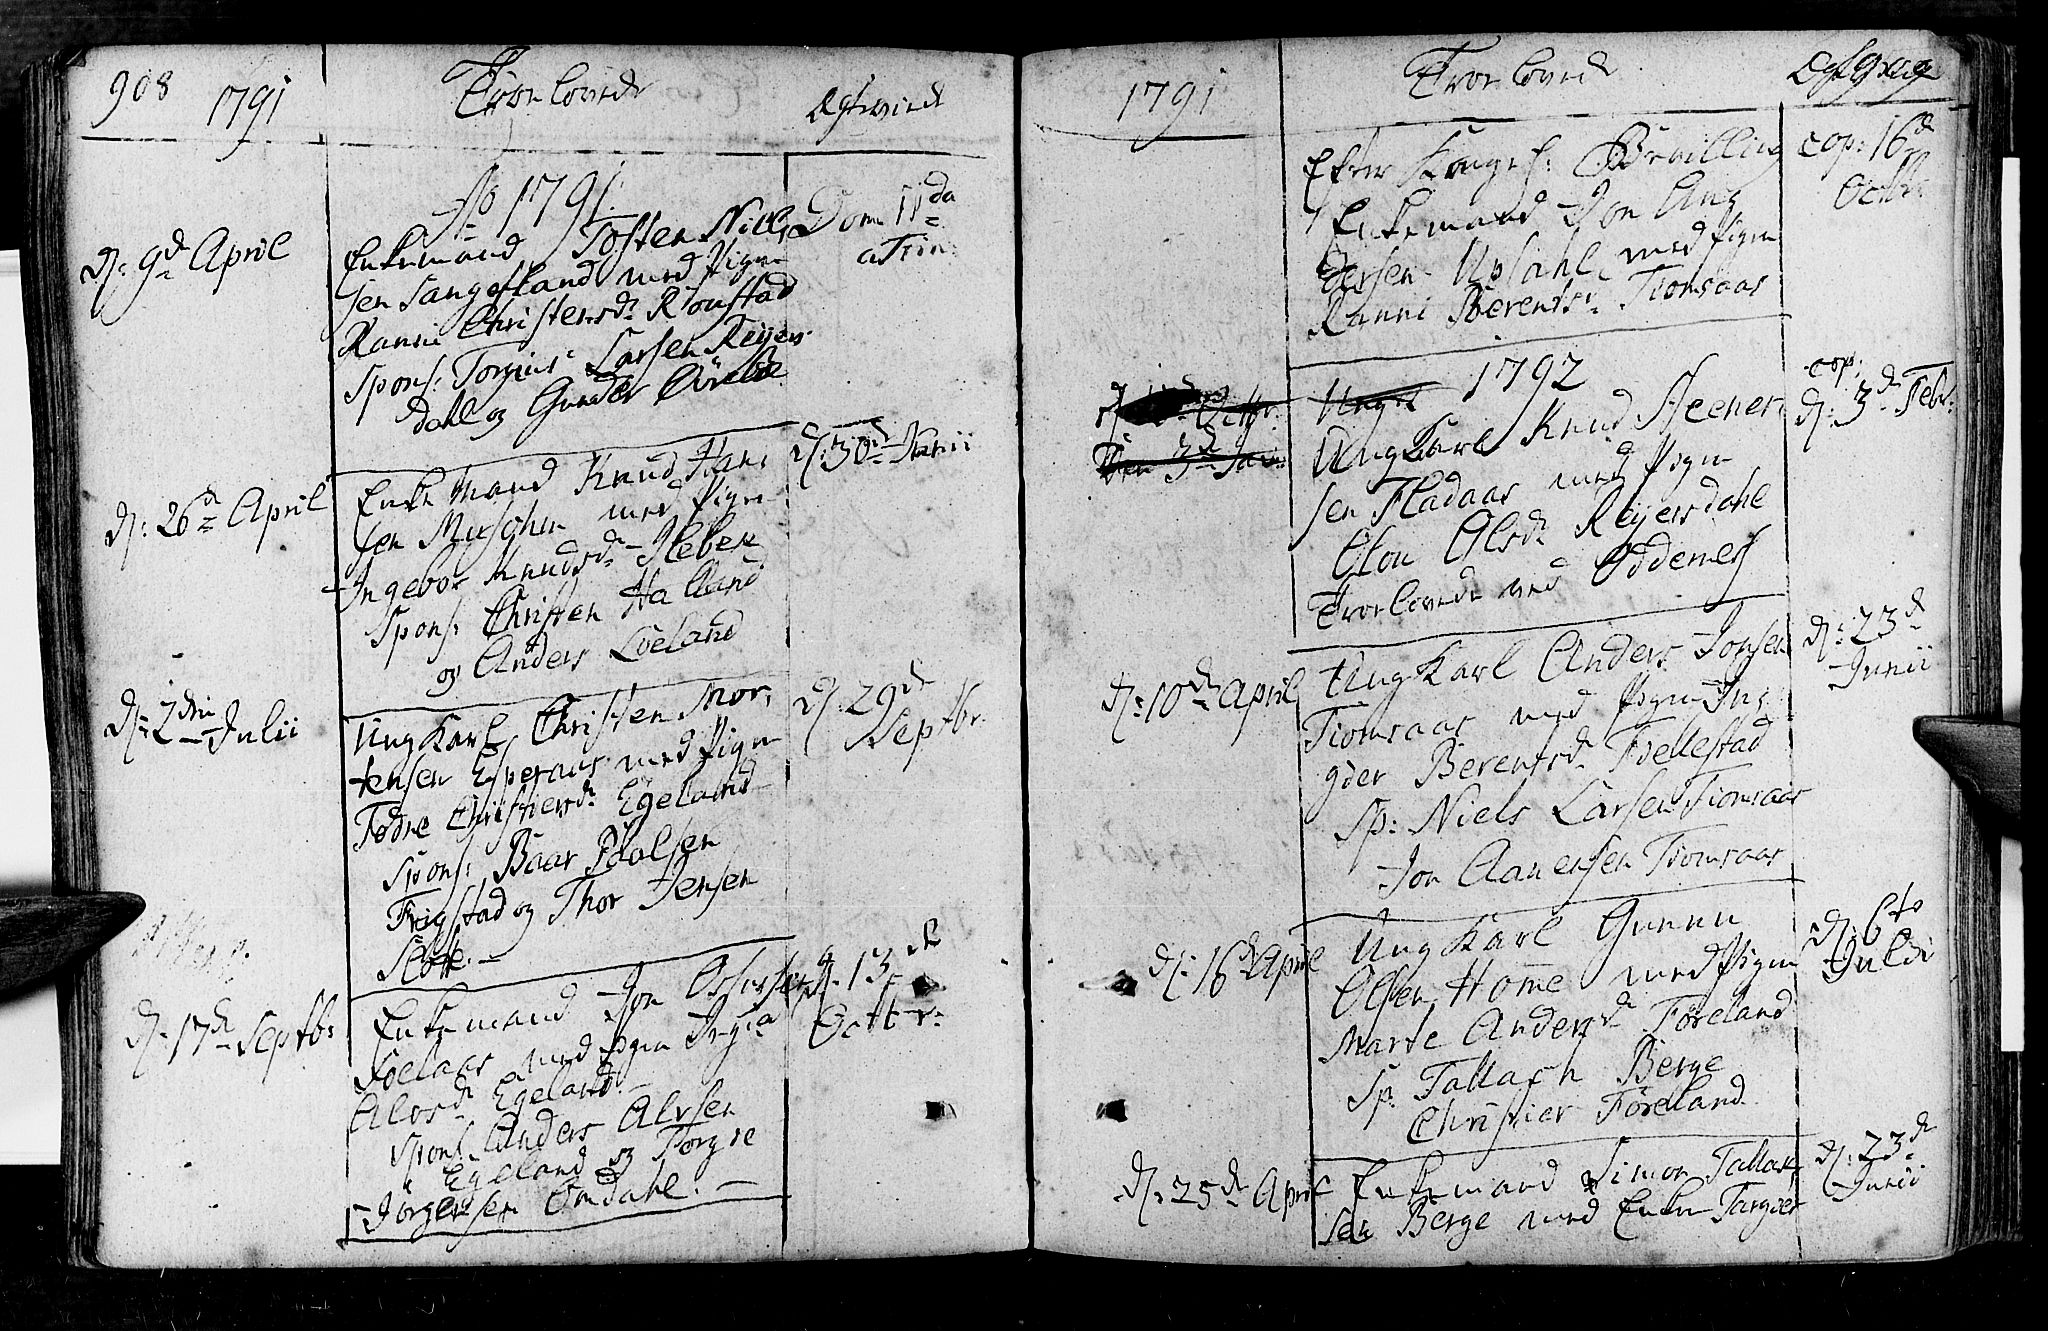 908
1791
Trolovede
Egteviede
Ao 1791.
D: 9d April
Enkemand Tosten Niel,
sen Langeland med Pigen
Ranni Christensd: Rionstad
Spons: Torgius Larsen Reiers
dahl og Gunder
Dom 11da
a Trin:
D: 26d April
Enke Mand Knud Han,
sen med Pigen
Ingebor Knudsd:
Spons: Christen Haaland
og Anders Löeland
D: 30d Junii
D: 2den Julii
Ung Karl Christen Mor,
tensen Esperaas med Pigen
Todne Christensd: Egeland
Spons: Baar
Frigstad og Thor Jensen
D: 29d
Septbr.
D: 17d Septbr:
Enkemand Jon
med Pigen
Alvsd: Egeland.
Spons: Anders Alvsen
Egeland og Torgie
Jörgensen Omdahl. —
d. 13d
Octbr:
1791
Trolovede
Efter Kongel: Bevilling
Enkemand Jon An,
dersen Upsahl med Pigen
Ranni Berentsd: Tiomsaas
cop: 16d
Octbr.
1792
Den 3d Jan:
Ung Karl Knud Steener,
sen Fladaas med Pigen
Olou Olsd: Reiersdahl
Trolovede ved Oddernes
cop:
D: 3d Febr.
D: 10d April
Ung Karl Anders Jonsen
Tiomsaas med Pigen In,
gder Berentsd: Fiellestad
Sp: Niels Larsen Tiomsaas
Jon Aanensen Tiomsaas
D: 23d
Junii
D: 16d April
Ung Karl Gunnu
Olsen Home med Pigen
Marte Andersd: Föreland
Sp: Tallach Berge
Christier Föreland.
D: 6te
Julii
D: 25d April
Enkemand Simon Tallak,
sen Berge med Enken Targier
D: 23d
Junii